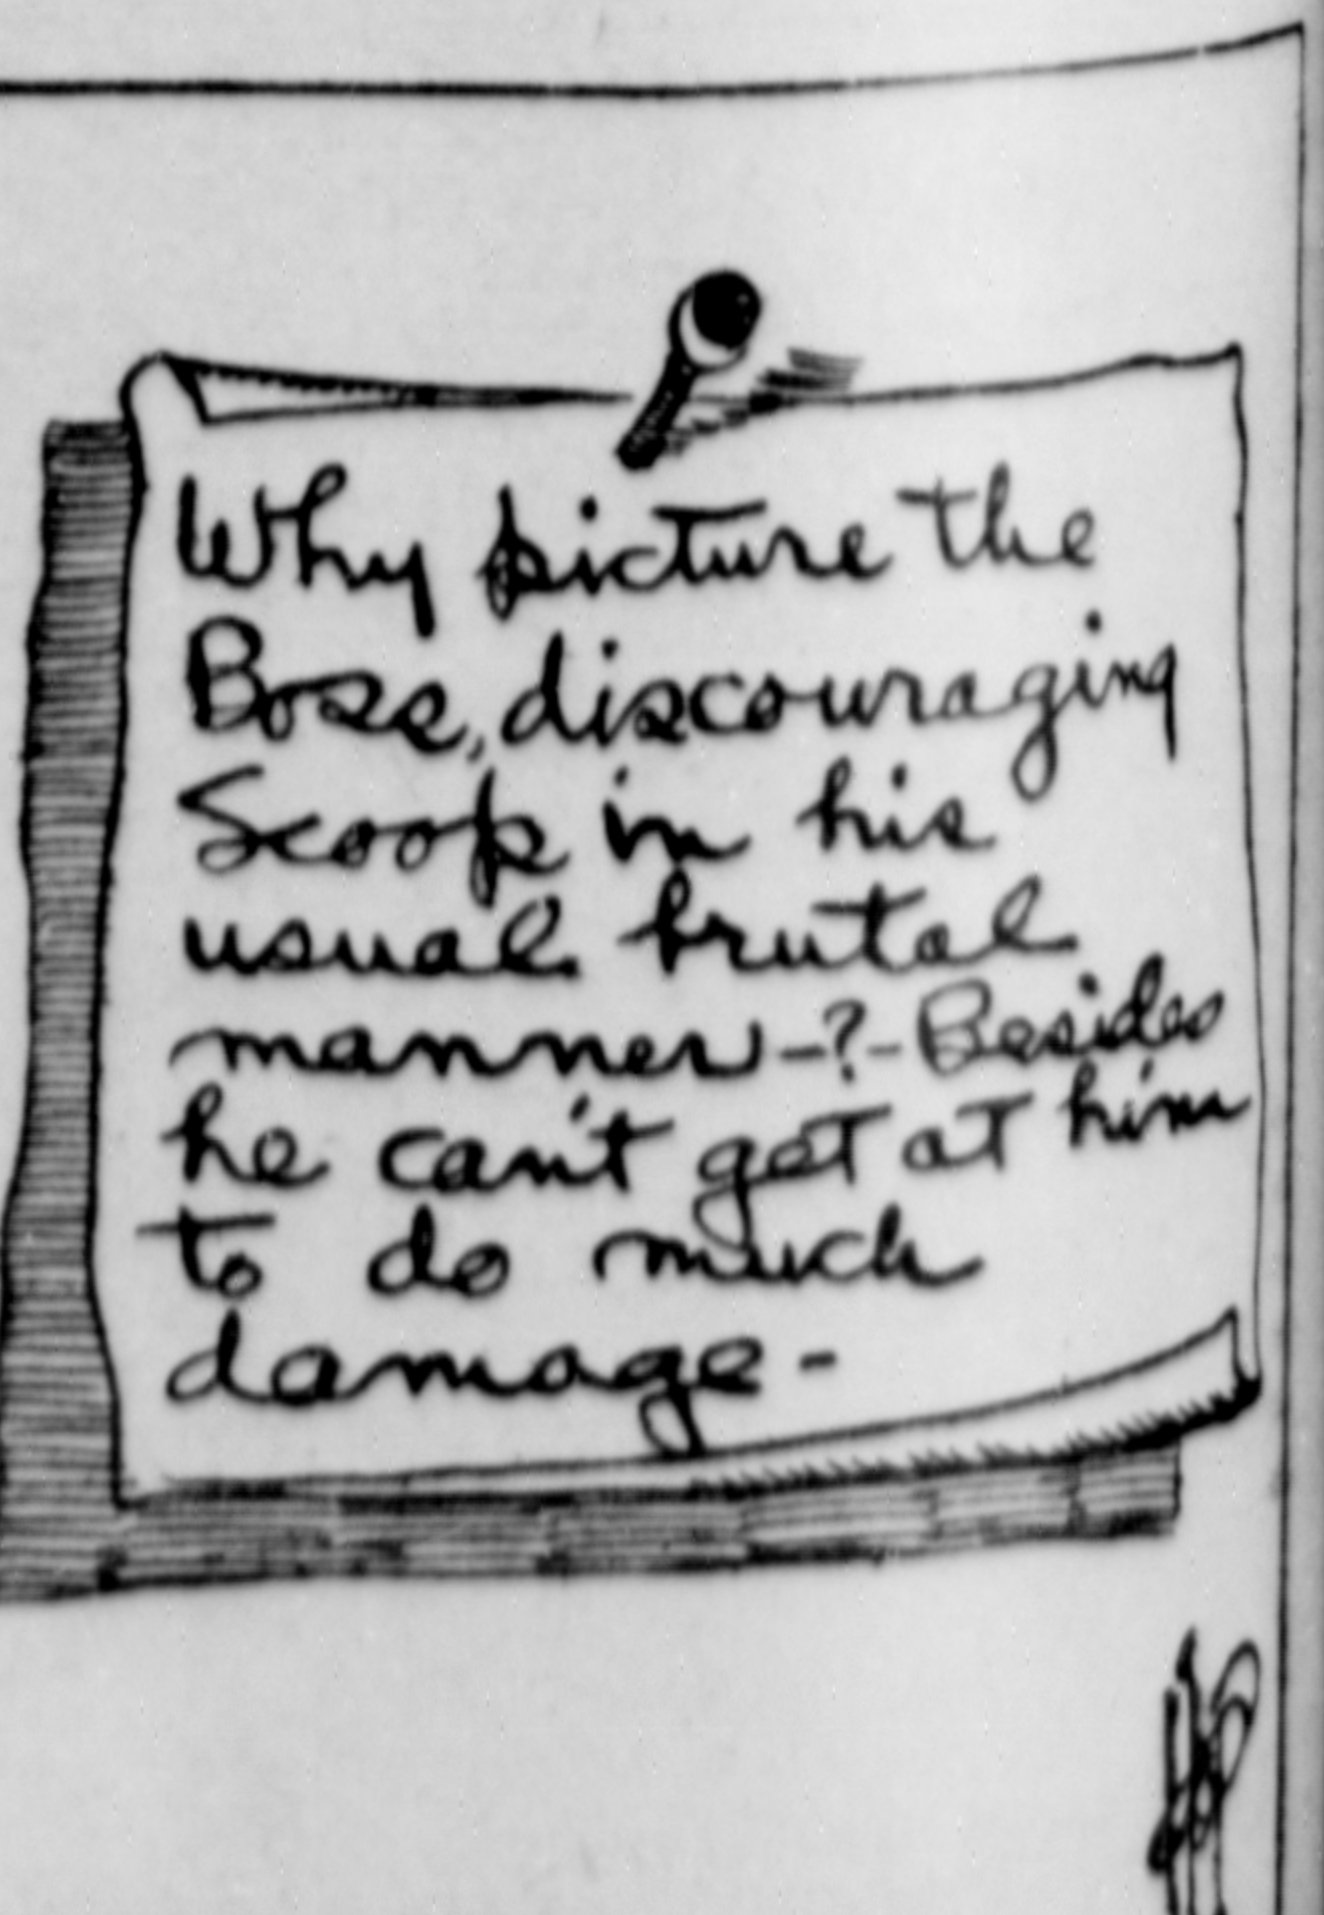 Why picture the
Boss, discouraging
Scoop in his
usual brutal
manner-?-Besides
he can't get at him
to do much
damage-